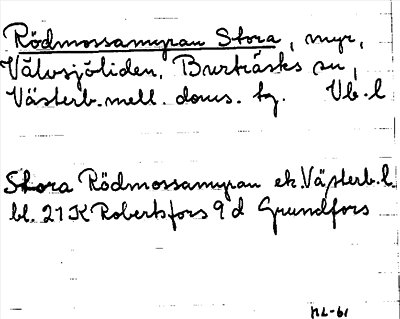 Rödmossamyran Stora, myr,
Välvsjöliden, Burträsks sn,
Västerb. mell. doms. tg. Vb. l
Stora Rödmossamyran ek. Västerb. l.
bl. 21K Robertsfors 9d Grundfors
NL-61